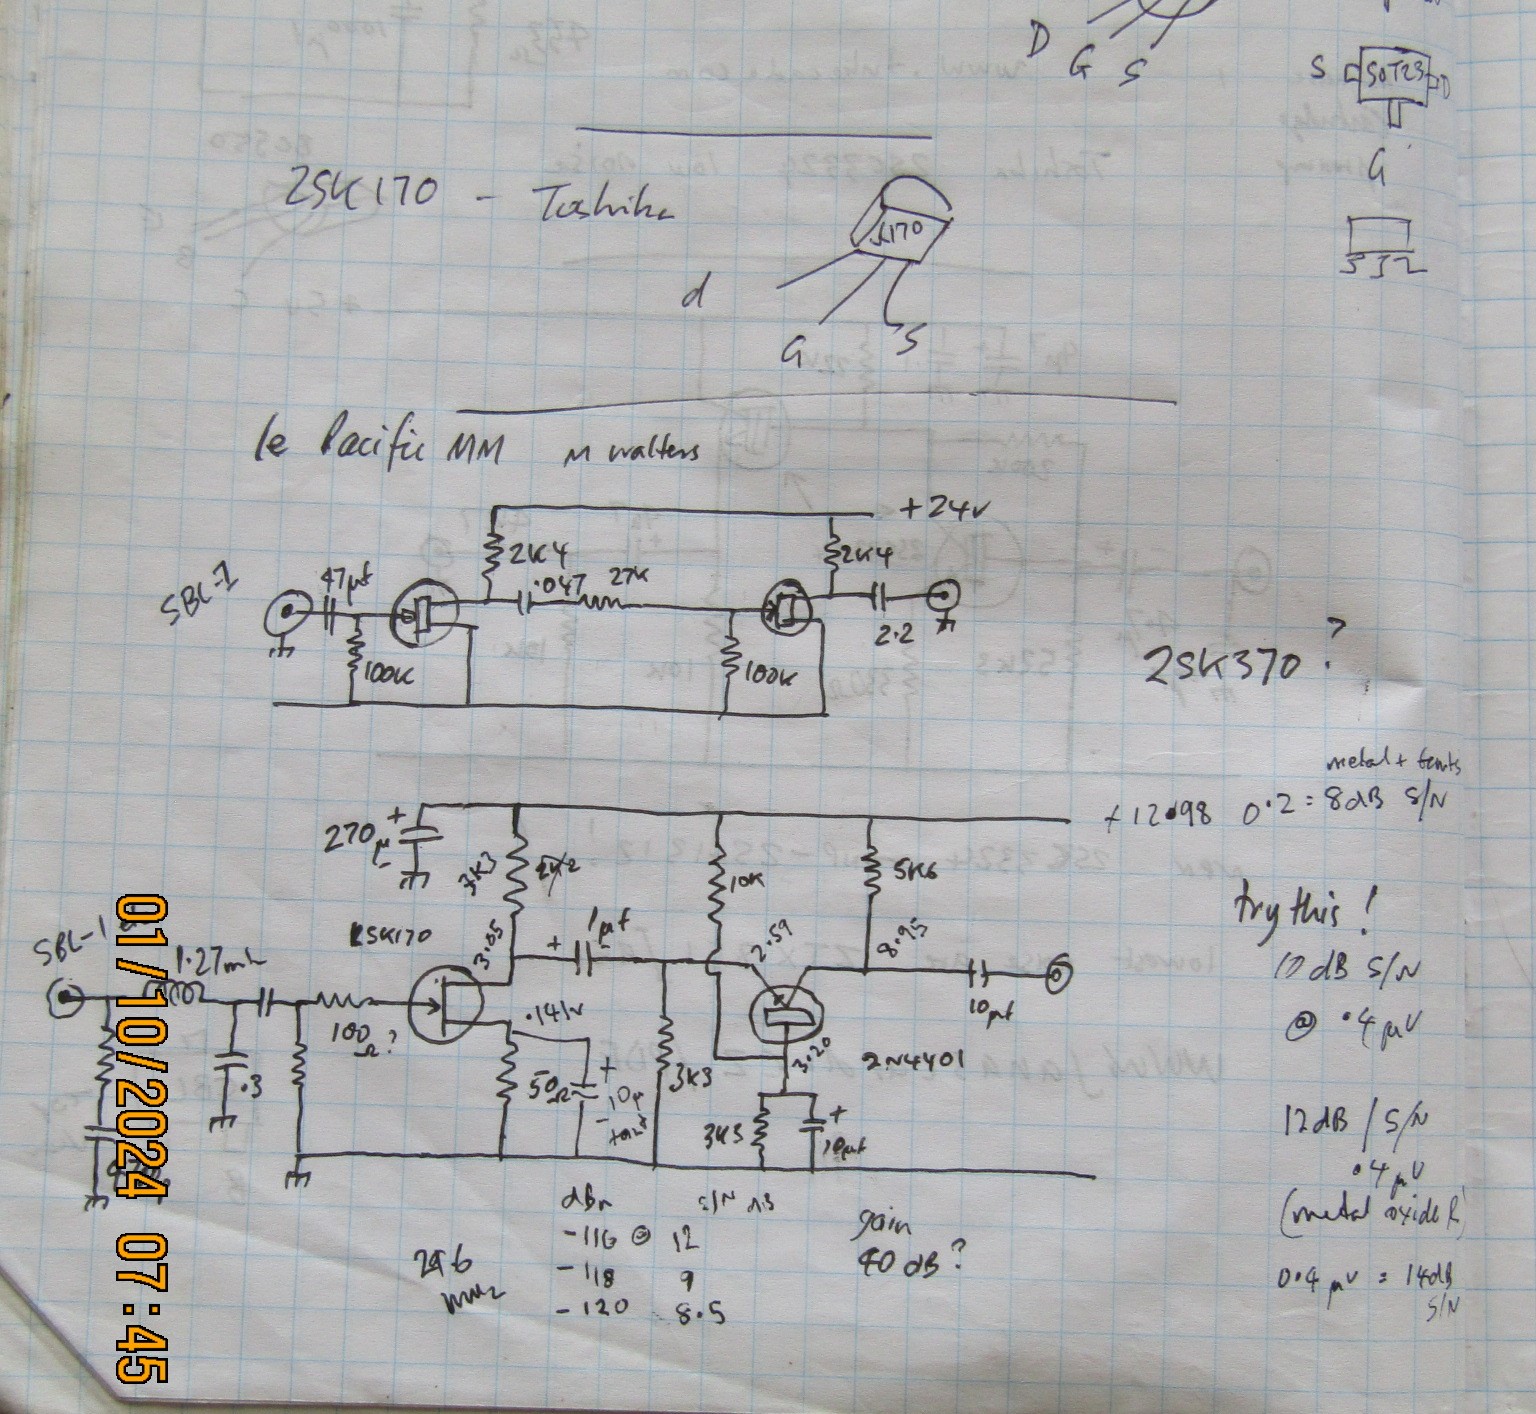 D G S
S SOT23 D
G
2SK170 - Toshiba
K170
d
G S
Le Pacific MM M Walters
+24v
2K4
2K4
SBL-1
47µf
.047
27K
2.2
100K
100K
2SK370 ?
metal + tants
+12.98 0.2 = 8dB S/N
270µ
+
-
3K3
2K2
10K
5K6
try this !
10 dB S/N
@ .4 µV
SBL-1
1.27mH
2SK170
3.05
+ 1µf
2.59
8.95
10µf
100Ω?
.141v
.3
50Ω
+
10µ
-
tant
3K3
3.20
2N4401
3K3
+
10µf
12dB / S/N
.4 µV
(metal oxide R)
0.4 µV = 14dB
S/N
dBm S/N dB
-116 @ 12
-118 9
-120 8.5
gain
40 dB?
296
MHz
01/10/2024 07:45